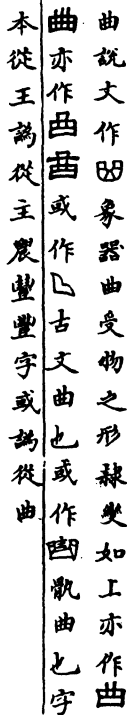 曲說文作𠚖象器曲受物之形隸變如上亦作曲
亦作或作𠃊古文曲也或作骩曲也字
本從王譌從主農豊豐字或譌從曲